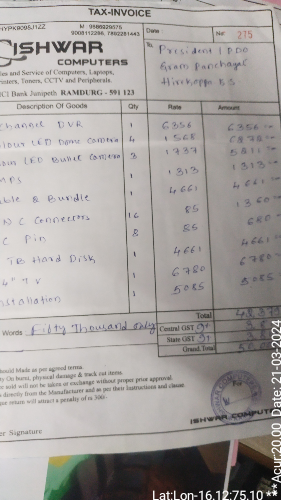 TAX-INVOICE
HYPK8095J1ZZ
M. 9586929576
9008112296, 7892281443
Date :
Nr: 275
ISHWAR
COMPUTERS
To,
President / PDO
Gram Panchayat
les and Service of Computers, Laptops,
rinters, Toners, CCTV and Peripherals.
ICI Bank Junipeth RAMDURG - 591 123
Description Of Goods Qty Rate Amount
channel DVR 1 6356 6356
LED Dome Camera 4 1568
LED Bullet Camera 3 1737
MPS 1 1313 1313
ble & Bundle 1 4661 4661
N C Connectors 16 85 1360
C Pin 8 85 680
TB Hard Disk 1 4661 4661
4" T.V 1 6780 6780
nstallation 1 5085 5085
Total
Words Fifty Thousand only
Central GST 9%
State GST 9%
Grand Total
hould Made as per agreed terms.
ty On burnt, physical damage & track out items.
or sold will not be taken or exchange without proper approval.
directly from the Manufacturer and as per their Instructions and clause.
que return will attract a penalty of rs.300-
For
ISHWAR COMPUT
er Signature
Lat:Lon-16.12:75.10
***Acur:20.00 Date: 21-03-2024